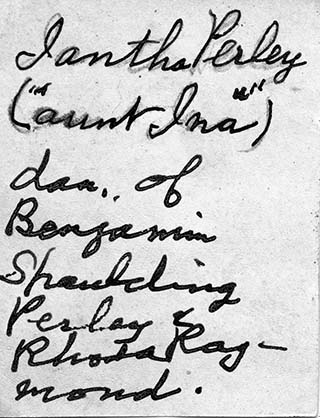 Iantha Perley
("aunt Ina")
dau. of
Benjamin
Spaulding
Perley &
Rhoda Ray-
mond.